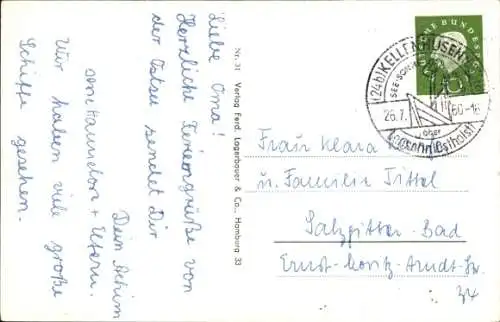 Liebe Oma!
Herzliche Feriengrüße von
der Ostsee sendet Dir
Dein Achim
+ Eltern.
Wir haben viele große
Schiffe gesehen.
Nr. 31 Verlag Ferd. Lagerbauer & Co., Hamburg 33
(24b) KELLENHUSEN
26.7. 60-18
DEUTSCHE BUNDESPOST
Frau Klara
u. Familie Tittel
Salzgitter-Bad
Ernst-Moritz-Arndt-Str.
34